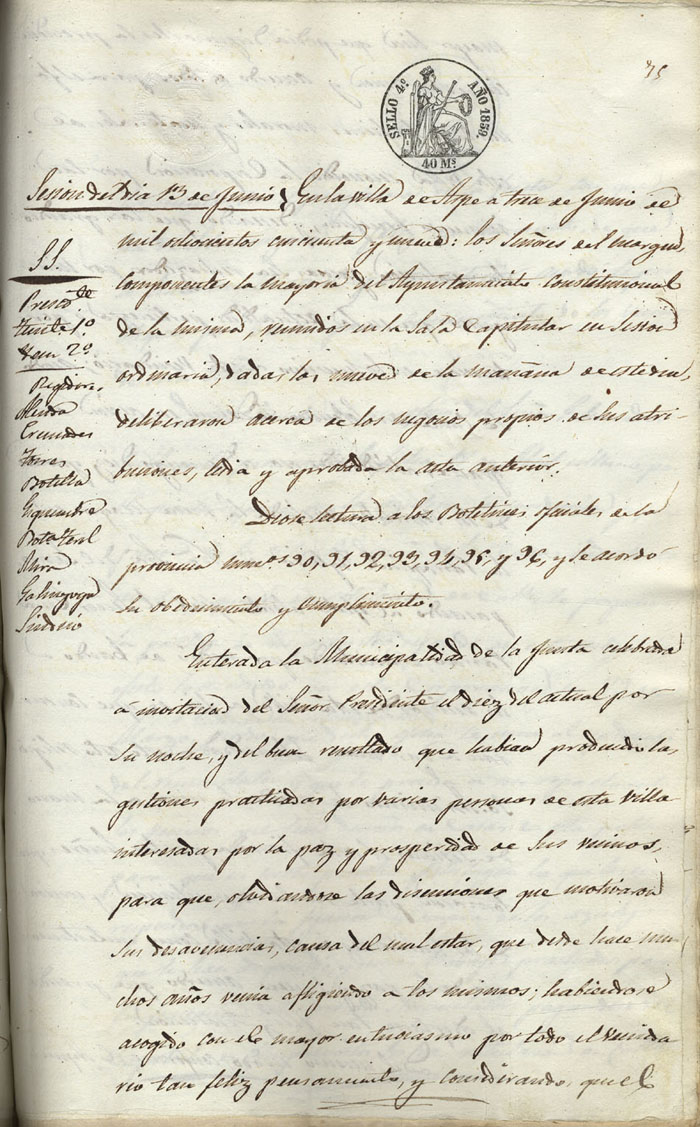 35
SELLO 4º AÑO 1859.
40 Ms.
Sesion del dia 13 de Junio
En la villa de Aspe a trece de Junio de
mil ochocientos cincuenta y nueve: los Señores del margen,
componentes la mayoria del Ayuntamiento constitucional
de la misma, reunidos en la Sala Capitular en Sesion
ordinaria, dadas las nueve de la mañana de este dia,
deliberaron acerca de los negocios propios de sus atri-
buciones, leida y aprobada la acta anterior.
SS.
Presidte
Tente 1º
Idem 2º
Regidores
Almodra
Cremades
Torres
Botella
Izquierdo
Mira
Galinsoga
Sindico
Diose lectura a los Boletines oficiales de la
provincia numos 90, 91, 92, 93, 94, 95, y 96, y se acordó
su obedecimiento y cumplimiento.
Enterada la Municipalidad de la Junta celebrada
á invitacion del Señor Presidente el diez del actual por
su noche, y del buen resultado que habian producido las
gestiones practicadas por varias personas de esta villa
interesadas por la paz y prosperidad de sus vecinos,
para que, olvidandose las disensiones que motivaron
sus desavenencias, causa del mal estar, que desde hace mu-
chos años venia afligiendo a los mismos; habiendose
acogido con el mayor entusiasmo por todo el vecinda
rio tan feliz pensamiento, y considerando, que el